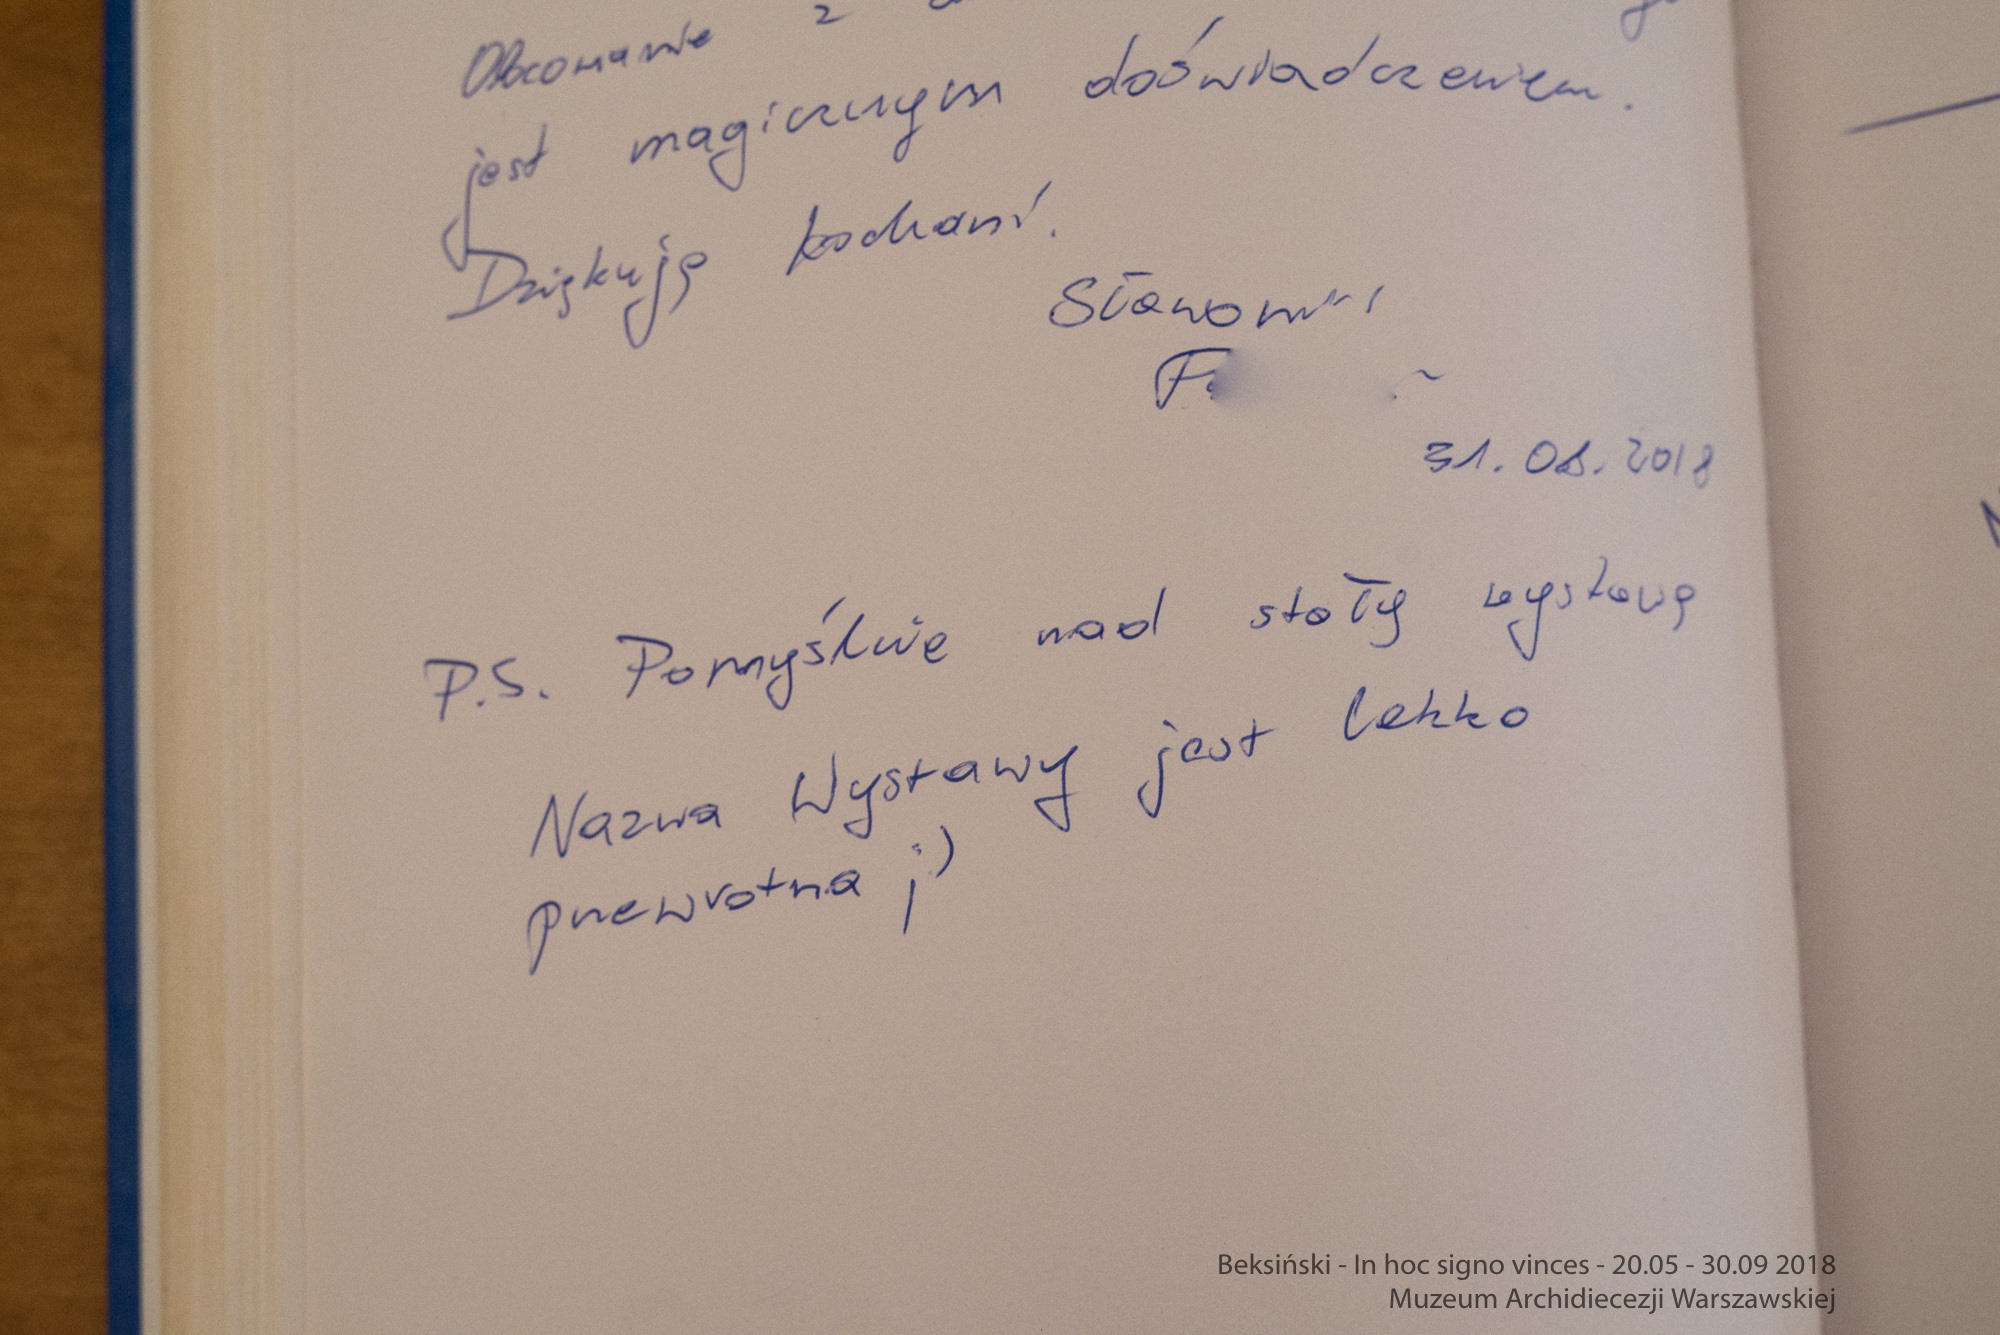 Obcowanie z
jest magicznym doświadczeniem.
Dziękuję kochani.
Sławomir
31.08.2018
P.S. Pomyślcie nad stołą wystawą
Nazwa Wystawy jest lekko
przewrotna ;)
Beksiński - In hoc signo vinces - 20.05 - 30.09 2018
Muzeum Archidiecezji Warszawskiej